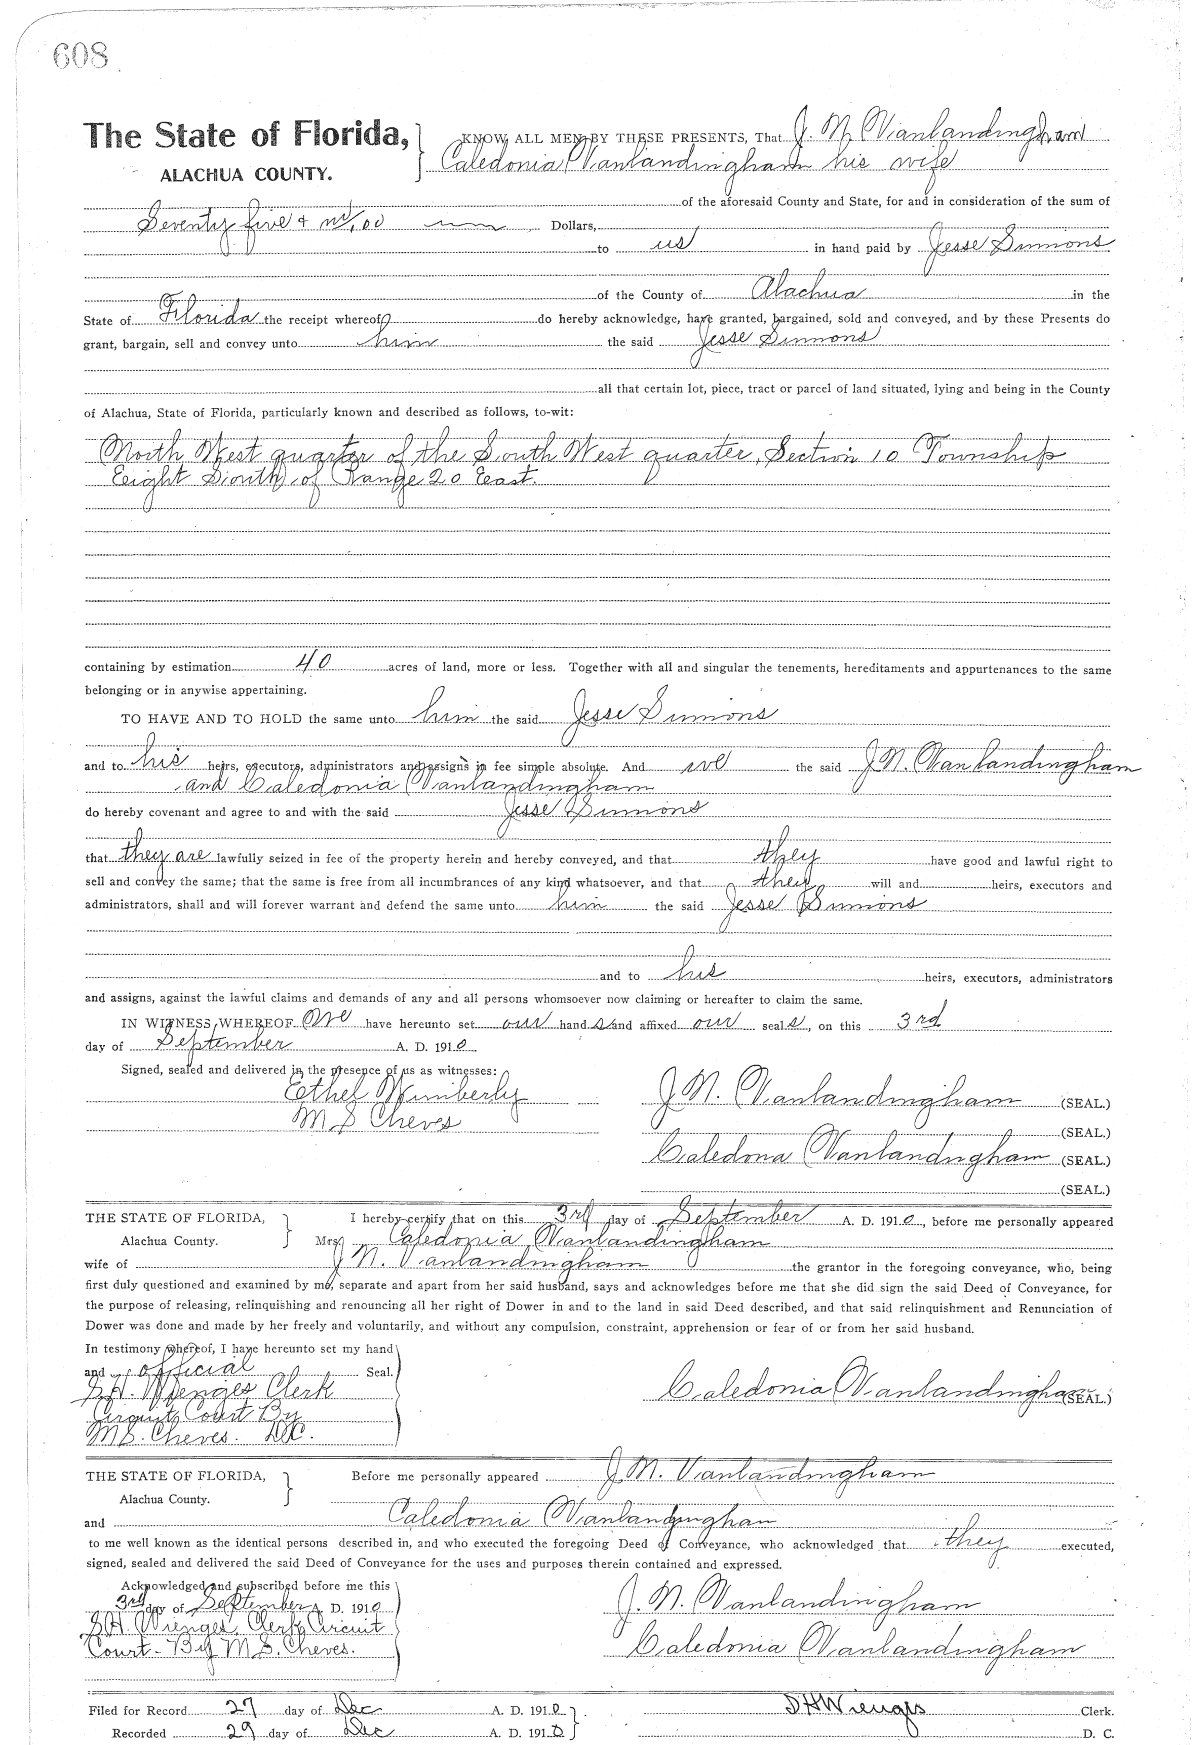 608
The State of Florida, KNOW ALL MEN BY THESE PRESENTS, That J. N. Vanlandingham
ALACHUA COUNTY. Caledonia Vanlandingham his wife
of the aforesaid County and State, for and in consideration of the sum of
Seventy five & no/00 Dollars,
to us in hand paid by Jesse Simmons
of the County of Alachua in the
State of Florida the receipt whereof do hereby acknowledge, have granted, bargained, sold and conveyed, and by these Presents do
grant, bargain, sell and convey unto him the said Jesse Simmons
all that certain lot, piece, tract or parcel of land situated, lying and being in the County
of Alachua, State of Florida, particularly known and described as follows, to-wit:
North West quarter of the South West quarter, Section 10 Township
Eight South, of Range 20 East.
containing by estimation 40 acres of land, more or less. Together with all and singular the tenements, hereditaments and appurtenances to the same
belonging or in anywise appertaining.
TO HAVE AND TO HOLD the same unto him the said Jesse Simmons
and to his heirs, executors, administrators and assigns in fee simple absolute. And we the said J. N. Vanlandingham
and Caledonia Vanlandingham
do hereby covenant and agree to and with the said Jesse Simmons
that they are lawfully seized in fee of the property herein and hereby conveyed, and that they have good and lawful right to
sell and convey the same; that the same is free from all incumbrances of any kind whatsoever, and that they will and heirs, executors and
administrators, shall and will forever warrant and defend the same unto him the said Jesse Simmons
and to his heirs, executors, administrators
and assigns, against the lawful claims and demands of any and all persons whomsoever now claiming or hereafter to claim the same.
IN WITNESS WHEREOF We have hereunto set our hands and affixed our seals, on this 3rd
day of September A. D. 1910.
Signed, sealed and delivered in the presence of us as witnesses:
Ethel Wimberly J. N. Vanlandingham (SEAL.)
M S Cheves (SEAL.)
Caledona Vanlandingham (SEAL.)
(SEAL.)
THE STATE OF FLORIDA, I hereby certify that on this 3rd day of September A. D. 1910, before me personally appeared
Alachua County. Mrs. Caledonia Vanlandingham
wife of J. N. Vanlandingham the grantor in the foregoing conveyance, who, being
first duly questioned and examined by me, separate and apart from her said husband, says and acknowledges before me that she did sign the said Deed of Conveyance, for
the purpose of releasing, relinquishing and renouncing all her right of Dower in and to the land in said Deed described, and that said relinquishment and Renunciation of
Dower was done and made by her freely and voluntarily, and without any compulsion, constraint, apprehension or fear of or from her said husband.
In testimony whereof, I have hereunto set my hand
and official Seal.
S.H. Wienges Clerk Caledonia Vanlandingham (SEAL.)
Circuit Court By
M S. Cheves. D.C.
THE STATE OF FLORIDA, Before me personally appeared J. N. Vanlandingham
Alachua County.
and Caledonia Vanlandingham
to me well known as the identical persons described in, and who executed the foregoing Deed of Conveyance, who acknowledged that they executed,
signed, sealed and delivered the said Deed of Conveyance for the uses and purposes therein contained and expressed.
Acknowledged and subscribed before me this
3rd day of September A. D. 1910 J. N. Vanlandingham
S.H. Wienges, Clerk Circuit
Court- By M S. Cheves. Caledonia Vanlandingham
Filed for Record 27 day of Dec A. D. 1910 S H Wienges Clerk.
Recorded 29 day of Dec A. D. 1910 D. C.